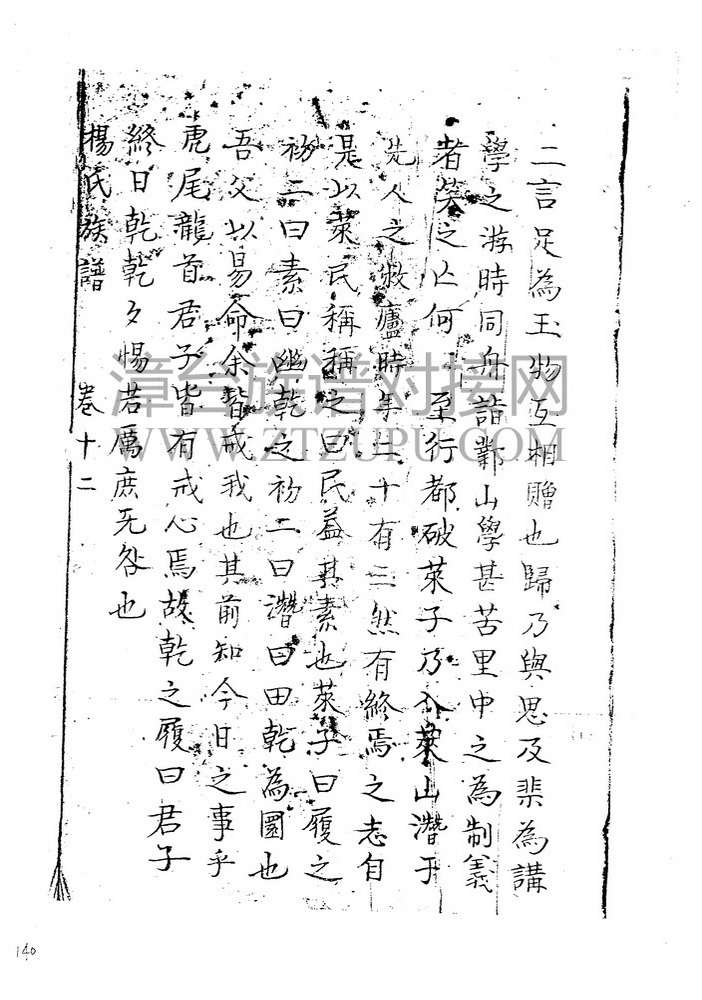 二言足為玉物互相贈也歸乃與思及棐為講
學之游時同舟詣鄴山學甚苦里中之為制義
者笑之亡何 至行都破萊子乃入萊山潛于
先人之敝廬時年二十有三然有終焉之志自
是以萊民稱稱之曰民益其素也萊子曰履之
初二曰素曰幽乾之初二曰潛曰田乾為圜也
吾父以易命余皆戒我也其前知今日之事乎
虎尾龍首君子皆有戒心焉故乾之履曰君子
終日乾乾夕惕若厲庶无咎也
楊氏族譜 卷十二
漳台族谱对接网
WWW.ZTZUPU.COM
140